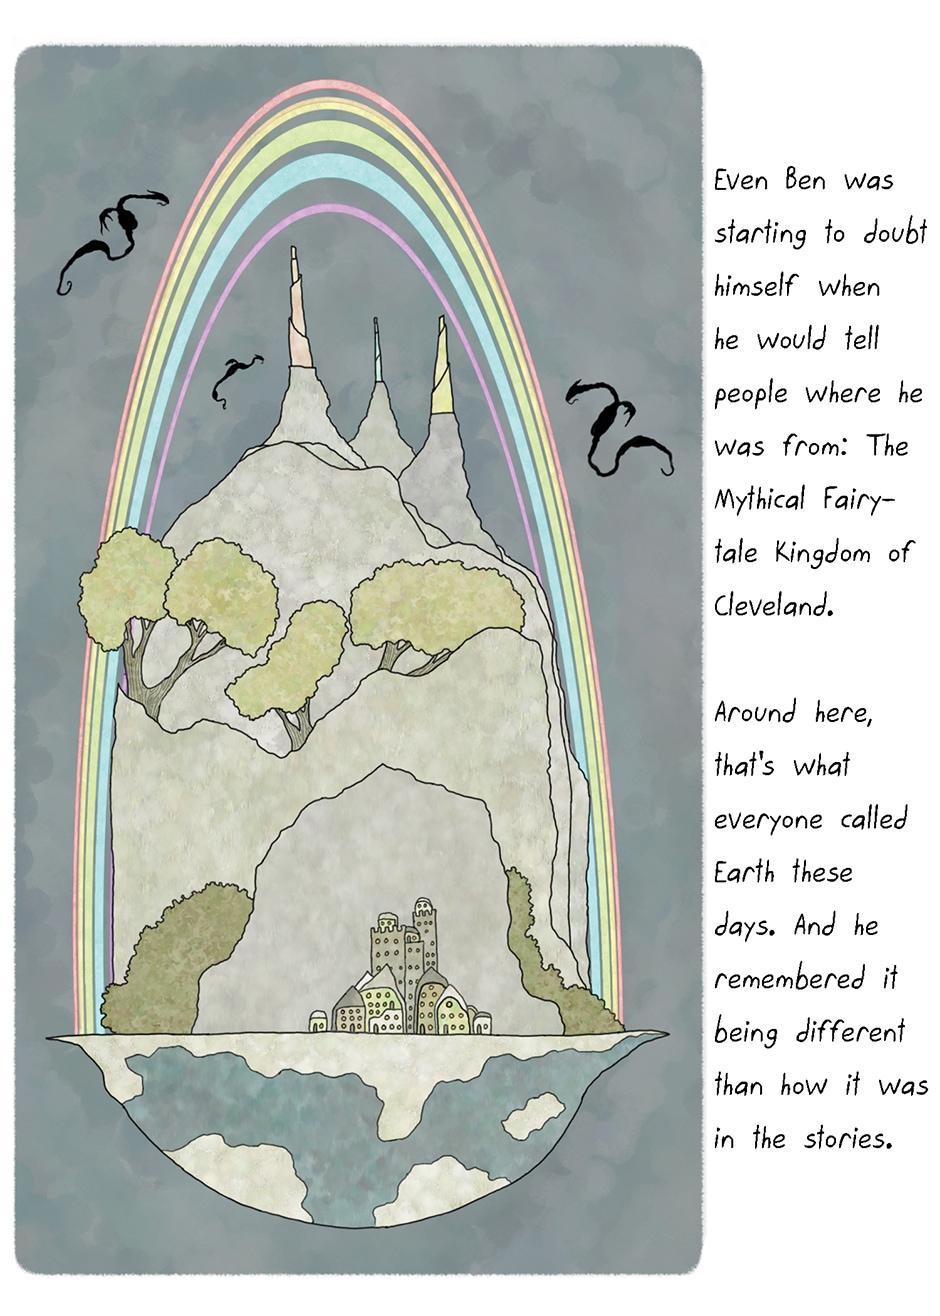 Even Ben was
starting to doubt
himself when
he would tell
people where he
was from: The
Mythical Fairy-
tale Kingdom of
Cleveland.
Around here,
that's what
everyone called
Earth these
days. And he
remembered it
being different
than how it was
in the stories.